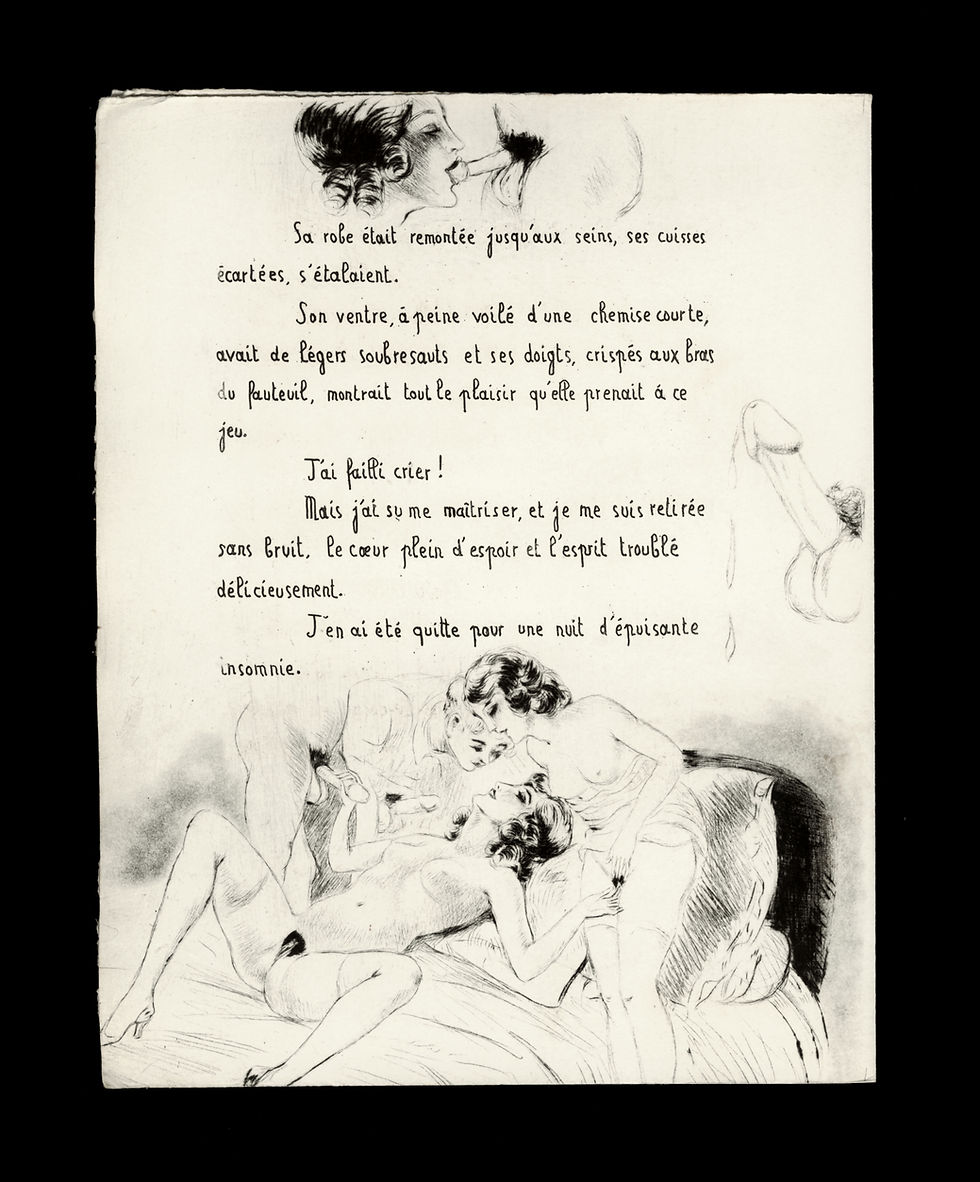 Sa robe était remontée jusqu'aux seins, ses cuisses
écartées, s'étalaient.
Son ventre, à peine voilé d'une chemise courte,
avait de légers soubresauts et ses doigts, crispés aux bras
du fauteuil, montrait tout le plaisir qu'elle prenait à ce
jeu.
J'ai failli crier !
Mais j'ai su me maîtriser, et je me suis retirée
sans bruit, le cœur plein d'espoir et l'esprit troublé
délicieusement.
J'en ai été quitte pour une nuit d'épuisante
insomnie.